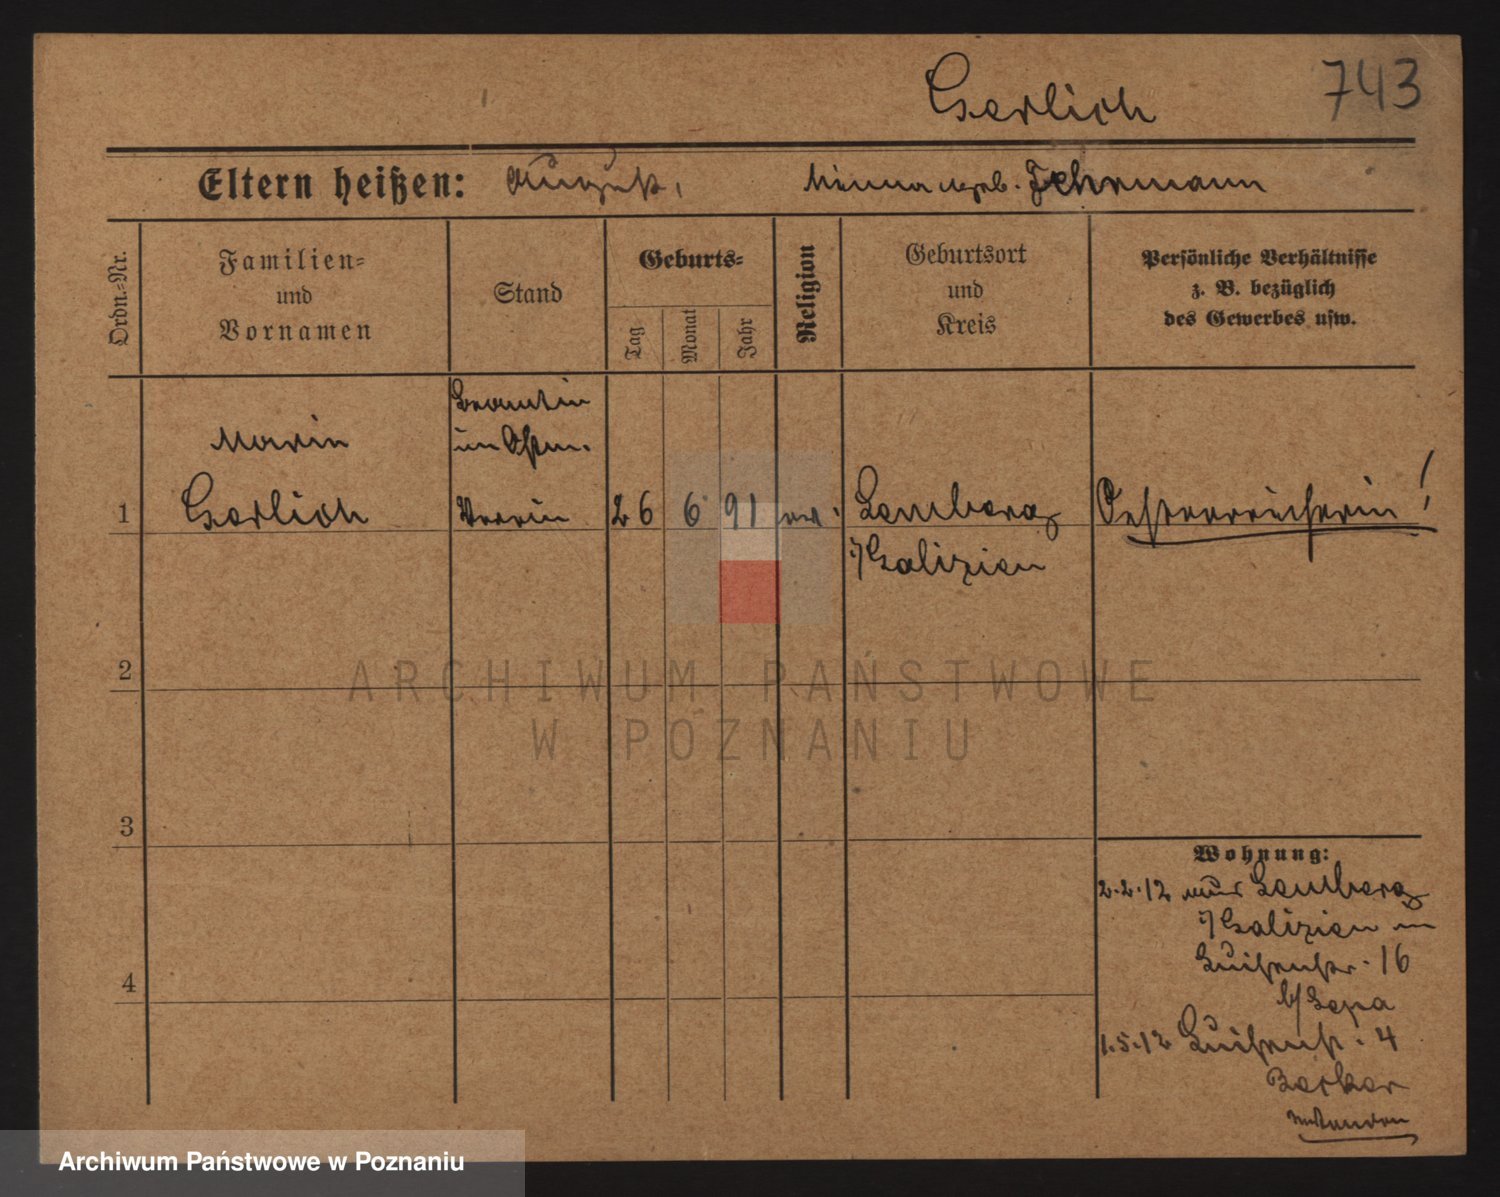 743
Gerlich
Eltern heißen: August, Minna geb. Fehrmann
Ordn.-Nr.
Familien- und Vornamen
Stand
Geburts-
Tag
Monat
Jahr
Religion
Geburtsort und Kreis
Persönliche Verhältnisse z. B. bezüglich des Gewerbes usw.
Beamtin
Marie
im Ostm.
1 Gerlich Verein 26 6 91 ev. Lemberg Oesterreicherin!
i/Galizien
2
ARCHIWUM PAŃSTWOWE
W POZNANIU
3
Wohnung:
2.2.12 aus Lemberg
i/Galizien
Luisenstr. 16
b/
4
1.5.12 Luisenst. 4
Becker
Archiwum Państwowe w Poznaniu